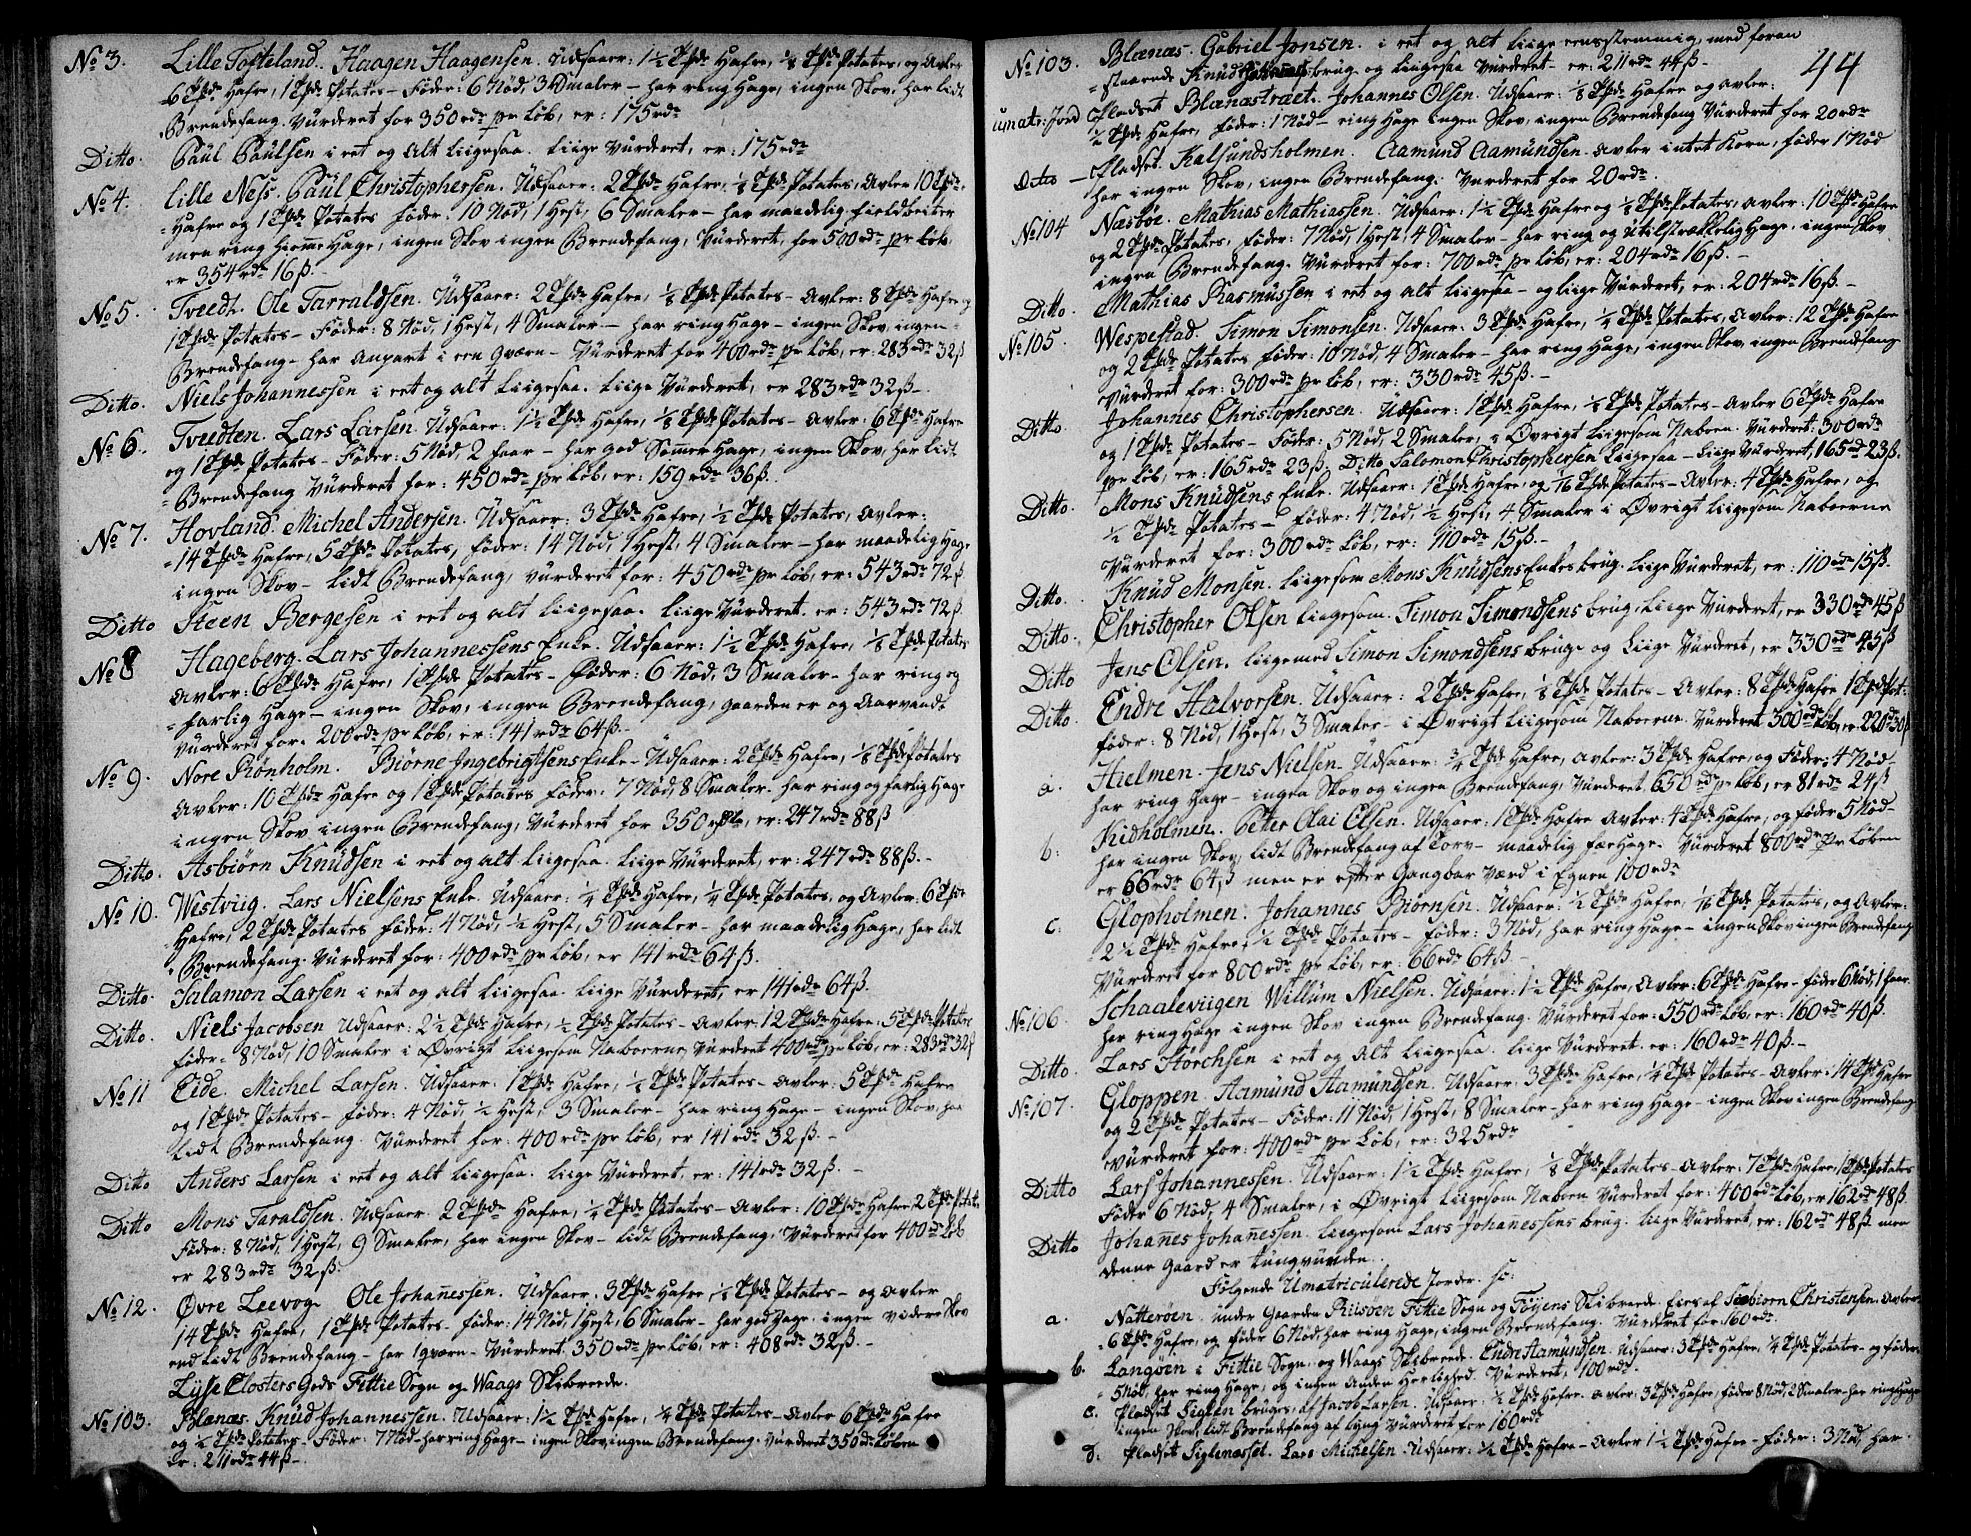 No 3. Lille Tofteland. Haagen Haagensen. Udsaaer: 1½ Tpde Hafre, ⅛ Tpde Potates, og Avler
6 Tpde Hafre, 1 Tpde Potates - Føder: 6 Nød, 3 Smaler - har ring Hage, ingen Skov, har lidt
Brendefang. Vurderet for 350 rdr pr Løb, er: 175 rdr
Ditto. Paul Paulsen i eet og Alt liigesaa. liige Vurderet, er: 175 rdr
No 4. Lille Næss. Paul Christophersen. Udsaaer: 2 Tpde Hafre, ⅛ Tpde Potates, Avler 10 Tpde
Hafre og 1 Tpde Potates føder: 10 Nød, 1 Hest, 6 Smaler - har maadelig fieldbeiter
men ring Hiemme Hage, ingen Skov ingen Brendefang, Vurderet, for 500 rdr pr Løb,
er 354 rdr 16 ß. -
No 5. Tvedt. Ole Tarraldsen. Udsaaer: 2 Tpde Hafre, ⅛ Tpde Potates - Avler: 8 Tpde Hafre og
1 Tpde Potates - Føder: 8 Nød, 1 Hest, 4 Smaler - har ring Hage - ingen Skov, ingen
Brendefang - har Anpart i een Qværn - Vurderet for 400 rdr pr Løb, er: 283 rdr 32 ß
Ditto. Niels Johannessen i eet og alt liigesaa. liige Vurderet, er 283 rdr 32 ß. -
No 6. Tvedten. Lars Larsen. Udsaaer: 1½ Tpde Hafre, ⅛ Tpde Potates - Avler: 6 Tpde Hafre
og 1 Tpde Potates - Føder: 5 Nød, 2 faar - har god Sommer Hage, ingen Skov, har lidt
Brendefang Vurderet for: 450 rdr pr Løb, er: 159 rdr 36 ß.
No 7. Hovland. Michel Andersen. Udsaaer: 3 Tpde Hafre, ½ Tpde Potates, Avler:
14 Tpde Hafre, 5 Tpde Potates, føder: 14 Nød, 1 Hest, 4 Smaler - har maadelig Hage
ingen Skov - lidt Brendefang, Vurderet for: 450 rdr pr Løb, er: 543 rdr 72 ß
Ditto Steen Bergesen i eet og alt liigesaa. liige Vurderet. er: 543 rdr 72 ß.
No 8 Hageberg. Lars Johannessens Enke. Udsaaer: 1½ Tpde Hafre, ⅛ Tpde Potates
Avler: 6 Tpde Hafre, 1 Tpde Potates - Føder: 6 Nød, 3 Smaler - har ring og
farlig Hage - ingen Skov, ingen Brendefang, Gaarden er og Aarvandt
Vurderet for: 200 rdr pr Løb, er: 141 rdr 64 ß. -
No 9. Nore Rønholm. Biørne Ingebrigtsens Enke - Udsaaer: 2 Tpde Hafre, ⅛ Tpde Potates
Avler: 10 Tpde Hafre og 1 Tpde Potates føder: 7 Nød, 8 Smaler - har ring og farlig Hage
ingen Skov ingen Brendefang, Vurderet for 350 rdr, er: 247 rdr 88 ß
Ditto. Asbiørn Knudsen i eet og alt liigesaa. liige Vurderet, er: 247 rdr 88 ß. -
No 10. Westviig. Lars Nielsens Enke. Udsaaer: ¼ Tpde Hafre, ¼ Tpde Potates, og Avler: 6 Tpde
Hafre, 2 Tpde Potates føder: 4 Nød, ½ Hest, 5 Smaler - har maadelig Hage, har lidt
Brendefang. Vurderet for: 400 rdr pr Løb, er 141 rdr 64 ß.
Ditto. Salamon Larsen i eet og alt liigesaa. liige Vurderet, er 141 rdr 64 ß.
Ditto. Niels Jacobsen Udsaaer: 2½ Tpde Hafre, ½ Tpde Potates - Avler: 12 Tpde Hafre: 5 Tpde Potates
føder - 8 Nød, 10 Smaler i Øvrigt liigesom Naboerne, Vurderet 400 rdr pr Løb, er: 283 rdr 32 ß
No 11 Eide. Michel Larsen. Udsaaer: 1 Tpde Hafre, ½ Tpde Potates - Avler: 5 Tpde Hafre
og 1 Tpde Potates - føder: 4 Nød, ½ Hest, 3 Smaler - har ring Hage - ingen Skov, har
lidt Brendefang. Vurderet for: 400 rdr pr Løb, er 141 rdr 32 ß. -
Ditto Anders Larsen i eet og alt liigesaa. liige Vurderet, er: 141 rdr 32 ß. -
Ditto Mons Taraldsen. Udsaaer. 2 Tpde Hafre, ¼ Tpde Potates - Avler: 10 Tpde Hafre, 2 Tpde Potates
Føder: 8 Nød, 1 Hest, 9 Smaler, har ingen Skov - lidt Brendefang, Vurderet for 400 rdr Løb
er 283 rdr 32 ß.
No 12. Øvre Leevog. Ole Johannessen. Udsaaer. 3 Tpde Hafre, ½ Tpde Potates - og Avler
14 Tpde Hafre, 1 Tpde Potates - føder: 14 Nød, 1 Hest, 6 Smaler - har god Hage, ingen videre Skov
end lidt Brendefang - har 1 Qværn - Vurderet 350 rdr pr Løb, er: 408 rdr 32 ß. -
Lysse Closters Gods Fittie Sogn og Waags Skibreede.
No 103. Blænæs. Knud Johannessen. Udsaaer: 1½ Tpde Hafre, ¼ Tpde Potates - Avler 6 Tpde Hafre
og ½ Tpde Potates - Føder: 7 Nød - har ring Hage - ingen Skov, ingen Brendefang. Vurderet 350 rdr Løben
er: 211 rdr 44 ß. -
44
No 103. Blænæs. Gabriel Jonsen. i eet og alt liige eensstemmig, med foran
staaende Knud brug og liigesaa Vurderet - er: 211 rdr 44 ß -
umatr: Jord Pladset Blænæstræet. Johannes Olsen. Udsaaer: ⅛ Tpde Hafre og Avler:
½ Tpde Hafre, føder: 1 Nød - ring Hage ingen Skov, ingen Brendefang Vurderet for 20 rdr
Ditto - Pladset. Kalsundsholmen. Aamund Aamundsen. Avler intet Korn, føder 1 Nød
har ingen Skov, ingen Brendefang. Vurderet for 20 rdr.
No 104 Næsbøe. Mathias Mathiassen. Udsaaer: 1½ Tpde Hafre og ⅛ Tpde Potates: Avler: 10 Tpde Hafre
og 2 Tpde Potates, føder: 7 Nød, 1 Hest, 4 Smaler - har ring og utilstrækkelig Hage, ingen Skov
ingen Brendefang. Vurderet for: 700 rdr pr Løb, er: 204 rdr 16 ß. -
Ditto. Mathias Rasmussen i eet og alt liigesaa - og liige Vurderet, er: 204 rdr 16 ß. -
No 105. Wespestad. Simon Simonsen. Udsaaer: 3 Tpde Hafre, ¼ Tpde Potates, Avler: 12 Tpde Hafre
og 2 Tpde Potates føder: 10 Nød, 4 Smaler - har ring Hage, ingen Skov, ingen Brendefang
Vurderet for: 300 rdr pr Løb, er: 330 rdr 45 ß. -
Ditto. Johannes Christophersen. Udsaaer: 1 Tpde Hafre, ⅛ Tpde Potates - Avler 6 Tpde Hafre
og 1 Tpde Potates - Føder: 5 Nød, 2 Smaler, i Øvrigt liigesom Naboen. Vurderet: 300 rdr
pr Løb, er: 165 rdr 23 ß. Ditto Salomon Christophersen liigesaa - liige Vurderet, 165 rdr 23 ß.
Ditto. Mons Knudsens Enke. Udsaaer: 1 Tpde Hafre, og 1/16 Tpde Potates - Avler: 4 Tpde Hafre, og
½ Tpde Potates - føder: 4 Nød, ½ Hest, 4 Smaler i Øvrigt liigesom Naboerne
Vurderet for: 300 rdr Løb, er: 110 rdr 15 ß. -
Ditto. Knud Monsen. liigesom Mons Knudsens Enkes brug. liige Vurderet, er: 110 rdr 15 ß.
Ditto. Christopher Olsen liigesom. Simon Simondsens brug, liige Vurderet, er 330 rdr 45 ß
Ditto Jens Olsen. liige med Simon Simondsens brug og liige Vurderet, er 330 rdr 45 ß
Ditto. Endre Halvorsen. Udsaaer: 2 Tpde Hafre, ⅛ Tpde Potates - Avler: 8 Tpde Hafre 1 Tpde Pot:
føder: 8 Nød, 1 Hest, 3 Smaler - i Øvrigt liigesom Naboerne. Vurderet 300 rdr Løb, er 220 rdr 30 ß
a. Hielmen. Jens Nielsen. Udsaaer: ¾ Tpde Hafre, Avler: 3 Tpde Hafre, og Føder: 4 Nød -
har ring Hage - ingen Skov og ingen Brendefang, Vurderet 650 rdr Løb, er 81 rdr 24 ß
b: Kidholmen. Peter Olai Elsen. Udsaaer: 1 Tpde Hafre Avler: 4 Tpde Hafre, og føder 5 Nød -
har ingen Skov, lidt Brendefang af Torv - maadelig fæe Hage. Vurderet 800 rdr pr Løben
er 66 rdr 64 ß men er efter Gangbar Værd i Egnen 100 rdr
c: Glopholmen. Johannes Biørnsen. Udsaaer: ½ Tpde Hafre, 1/16 Tpde Potates, og Avler:
2½ Tpde Hafre, ½ Tpde Potates - føder: 3 Nød, har ring Hage - ingen Skov ingen Brendefang
Vurderet for 800 rdr pr Løb, er: 66 rdr 64 ß. -
No 106 Schaaleviigen Willum Nielsen. Udsaaer: 1½ Tpde Hafre, Avler: 6 Tpde Hafre - føder 6 Nød, 1 faar
har ring Hage ingen Skov ingen Brendefang. Vurderet for: 550 rdr Løb, er: 160 rdr 40 ß.
Ditto. Lars Størchsen i eet og Alt liigesaa. liige Vurderet. er: 160 rdr 40 ß. -
No 107. Gloppen. Aamund Aamundsen. Udsaaer: 3 Tpde Hafre, ¼ Tpde Potates - Avler: 14 Tpde Hafre
og 2 Tpde Potates - Føder: 11 Nød, 1 Hest, 8 Smaler - har ring Hage - ingen Skov ingen Brendefang
Vurderet for: 400 rdr pr Løb, er: 325 rdr
Ditto Lars Johannessen. Udsaaer: 1½ Tpde Hafre, ⅛ Tpde Potates - Avler: 7 Tpde Hafre, 1 Tpde Potates
Føder 6 Nød, 4 Smaler, i Øvrigt liigesom Naboen Vurderet for: 400 rdr Løb, er 162 rdr 48 ß
Ditto Johannes Johannessen. liigesom Lars Johannessens brug. liige Vurderet, er: 162 rdr 48 ß men
denne Gaard er tungvunden.
Følgende Umatriculerede Jorder. sc:
a. Natterøen. under Gaarden Riilsøen Fittie Sogn og Føyens Skibreede. Eies af Torbiørn Christensen. Avler
6 Tpde Hafre, og føder 6 Nød, har ring Hage, ingen Brendefang. Vurderet for 160 rdr.
b. Langøen i Fittie Sogn, og Waags Skibreede. Endre Aamundsen. Udsaaer: 3 Tpde Hafre, ¼ Tpde Potates - og føder
5 Nød, har ring Hage, og ingen Anden Herlighed. Vurderet, 100 rdr.
c. Pladset Siglen bruges, af Jacob Larsen. Udsaaer: ½ Tpde Hafre. Avler: 3 Tpde Hafre, føder 8 Nød, 2 Smaler - har ring Hage
ingen Skov, lidt Brendefang af Lyng Vurderet for 160 rdr
d: Pladset Siglenæsset. Lars Michelsen. Udsaaer: ½ Tpde Hafre - Avler 1½ Tpde Hafre - føder: 3 Nød, har